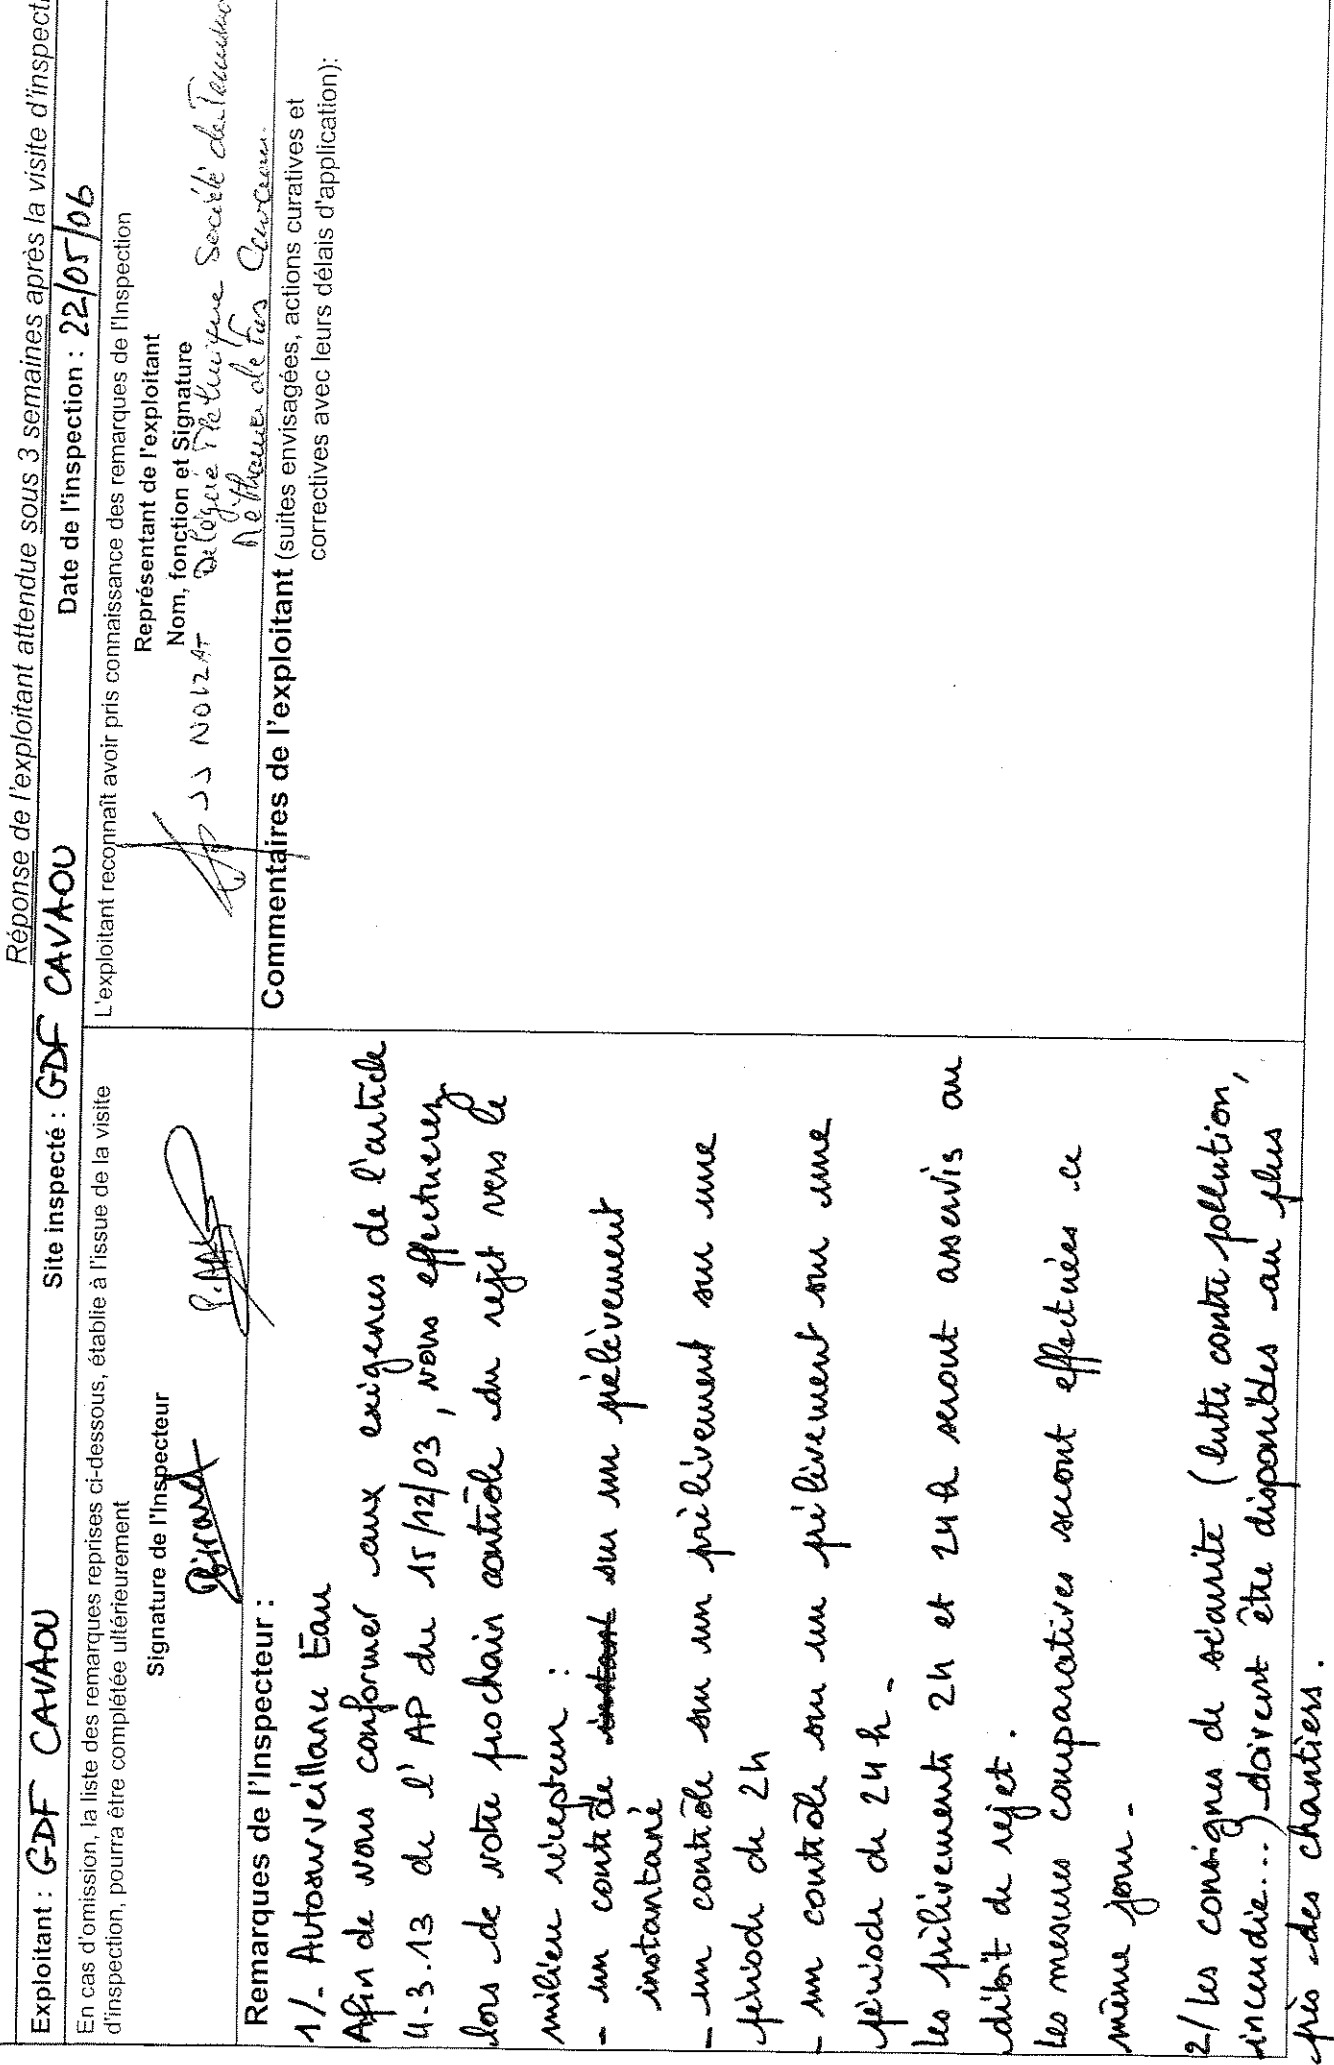 Réponse de l'exploitant attendue sous 3 semaines après la visite d'inspect
Exploitant : GDF CAVAOU Site inspecté : GDF CAVAOU Date de l'inspection : 22/05/06
En cas d'omission, la liste des remarques reprises ci-dessous, établie à l'issue de la visite
d'inspection, pourra être complétée ultérieurement
Signature de l'Inspecteur
L'exploitant reconnaît avoir pris connaissance des remarques de l'Inspection
Représentant de l'exploitant
Nom, fonction et Signature
JJ NOIZAT Délégué Société du
de Fos
Remarques de l'Inspecteur :
1/- Autosurveillance Eau
Afin de vous conformer aux exigences de l'article
4.3.13 de l'AP du 15/12/03, vous effectuerez
lors de votre prochain contrôle du rejet vers le
milieu récepteur :
- un contrôle instant sur un prélèvement
instantané
- un contrôle sur un prélèvement sur une
période de 2h
- un contrôle sur un prélèvement sur une
période de 24h -
Les prélèvements 2h et 24h seront asservis au
débit de rejet.
Les mesures comparatives seront effectuées ce
même jour -
2/ Les consignes de sécurité (lutte contre pollution,
incendie...) doivent être disponibles au plus
près des chantiers.
Commentaires de l'exploitant (suites envisagées, actions curatives et
correctives avec leurs délais d'application):